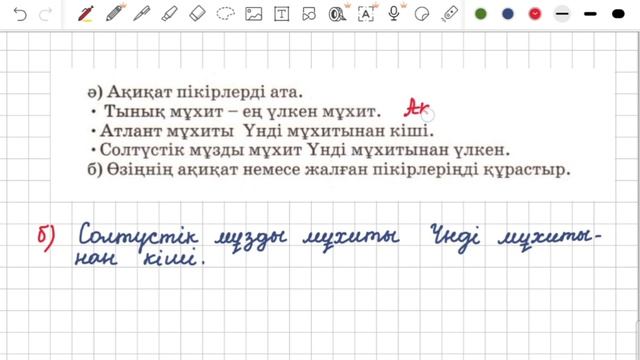 ә) Ақиқат пікірлерді ата.
• Тынық мұхит – ең үлкен мұхит. Ақ
• Атлант мұхиты Үнді мұхитынан кіші.
• Солтүстік мұзды мұхит Үнді мұхитынан үлкен.
б) Өзіңнің ақиқат немесе жалған пікірлеріңді құрастыр.
б) Солтүстік мұзды мұхиты Үнді мұхиты-
нан кіші.